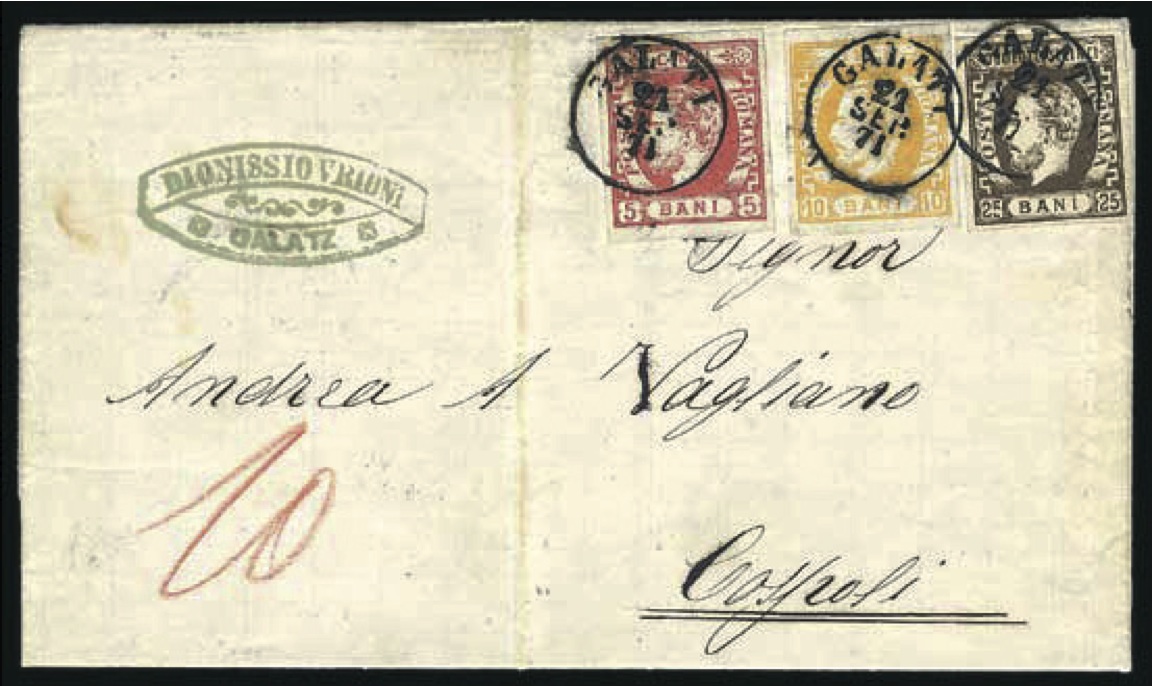 DIONISSIO VRIONI
GALATZ
GALATI
21
SEP.
71
5 BANI 5
GALATI
21
SEP.
71
10 BANI 10
GALATI
21
POSTA ROMANA
25 BANI 25
Signor
Andrea A Vagliano
10
Cospoli